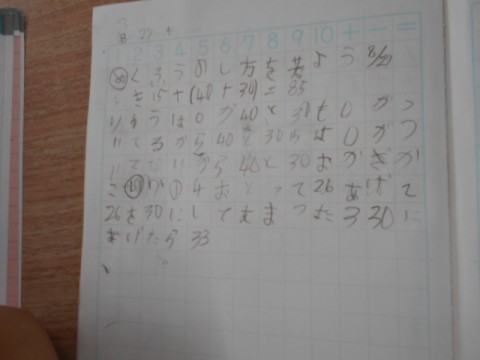 8 22 +
1 2 3 4 5 6 7 8 9 10 + − =
めくふうのし方を よう 8/22
しき 15+(40+30)=85
りゆうは0が40と30も0がつ
いてるから40と3015は0がつ
いてないから40と30 かぎか
こ 4おとって26あげて
26を30にしてあまった3 30に
あげたら 33